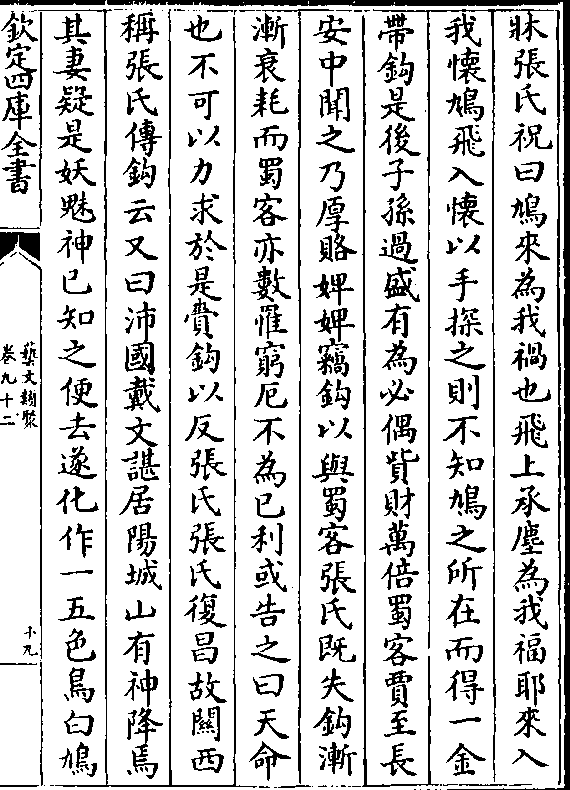 牀張氏祝曰鳩來為我禍也飛上承塵為我福耶來入
我懷鳩飛入懷以手探之則不知鳩之所在而得一金
帶鈎是後子孫過盛有為必偶貲財萬倍蜀客賈至長
安中聞之乃厚賂婢婢竊鈎以與蜀客張氏既失鈎漸
漸衰耗而蜀客亦數罹窮厄不為已利或告之曰天命
也不可以力求於是賫鈎以反張氏張氏復昌故關西
稱張氏傳鈎云又曰沛國戴文諶居陽城山有神降焉
其妻疑是妖魅神已知之便去遂化作一五色鳥白鳩
欽定四庫全書
藝文類聚
卷九十二
十九